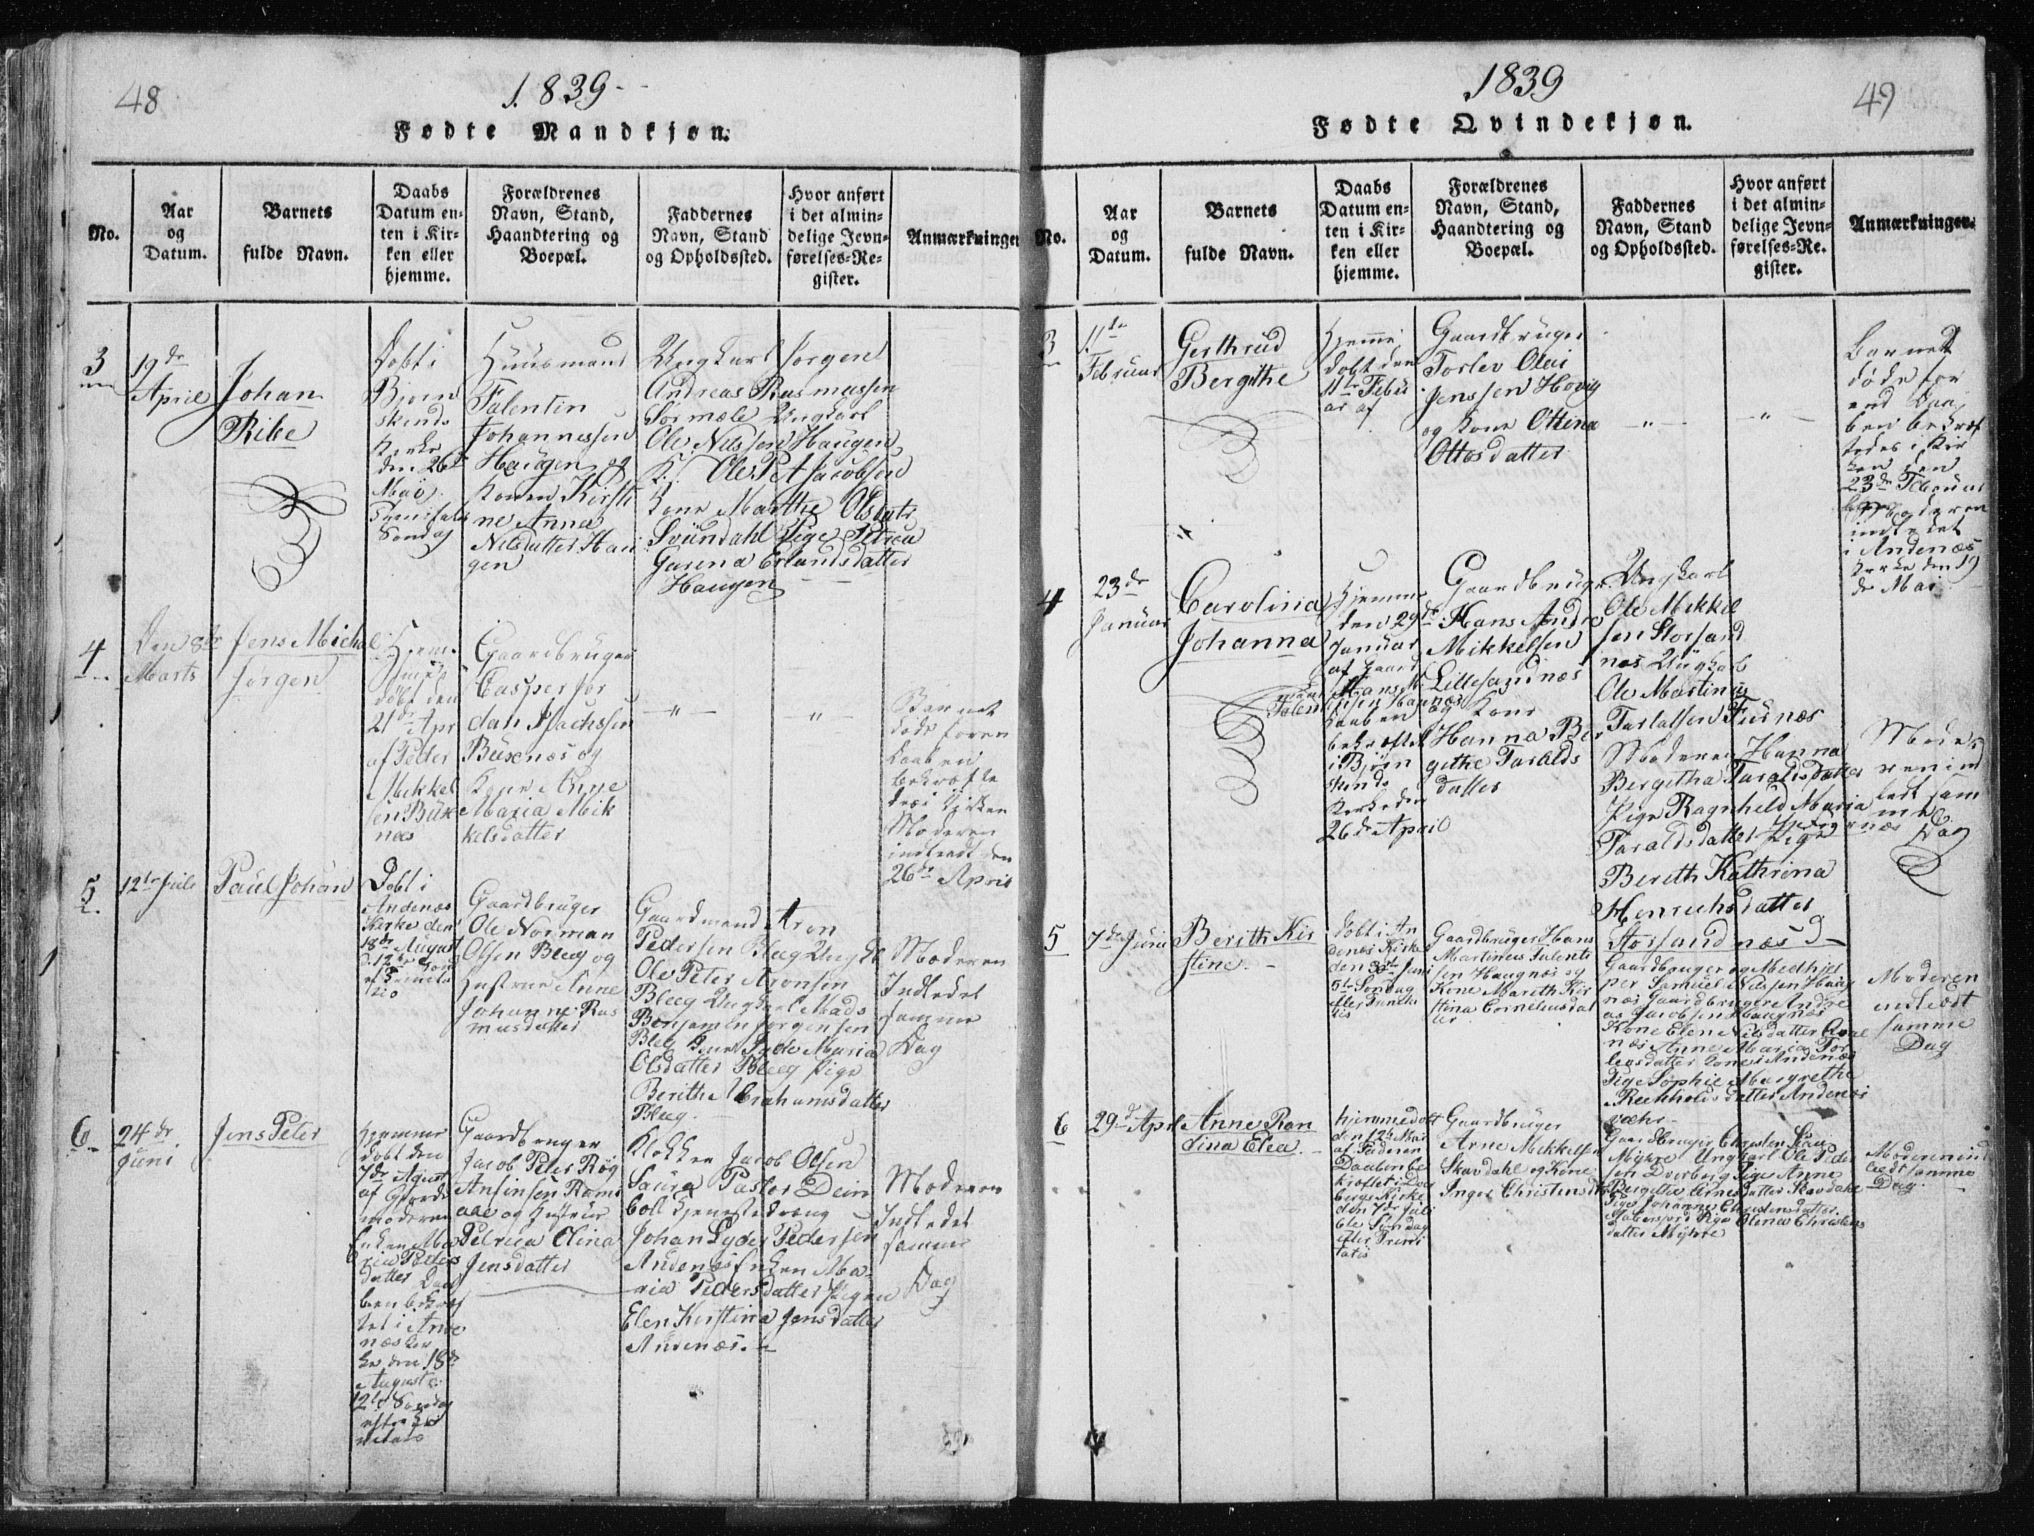 48
1839
Fødte Mandkjøn.
No.
Aar
og
Datum.
Barnets
fulde Navn.
Daabs
Datum en-
ten i Kir-
ken eller
hjemme.
Forældrenes
Navn, Stand,
Haandtering og
Boepæl.
Faddernes
Navn, Stand
og Opholdssted.
Hvor anført
i det almin-
delige Jevn-
førelses-Re-
gister.
Anmærkninger
3
19de
April
Johan
Ribe
Døbt i
Bjørn
skinds
Kirke
den 26de
Mai
Søndag
Huusmand
Falentin
Johannessen
Haugen og
Konen Kirsti
ne Anna
Nilsdatter Hau
gen
Ungkarl Jørgen
Andreas Rasmussen
Ungkarl
Ole Nilssen Haugen
K. Ole Pet Jacobsen
Kone Marthe Olsdatr
Svundahl Pige Petrea
Gurina Erlandsdatter
Haugen
4
Den 8de
Marts
Jens Michal
Jørgen
Hjem
døbt den
21de Apr
af Peder
Mikkel
sen Buxe
næs
Gaardbruger
Casper Jor
dan Isachsen
Buxnæs og
Kone Anne
Maria Mik
kelsdatter
— " —
" —
Barnet
døde foren
Daaben
bekræfte
des i Kirken
Moderen
indledt den
26de April
5
12te Juli
Paul Johan
Døbt i
Andenæs
Kirke den
18de August
Gaardbruger
Ole Norman
Olsen Bleeg og
Hustrue Anne
Johanne Ras
musdatter
Gaardmand Aron
Pedersen Bleeg Ungk
Ole Peter Aronsen
Bleeg Ungkarl Mads
Benjamin Jørgensen
Bleg Kone Inde Maria
Olsdatter Bleeg Pige
Berithe Abrahamsdatter
Bleeg
Moderen
Indledet
samme
Dag
6
24de
Juni
Jens Peter
Hjemme
døbt den
7de August
af Gjorde
moderen
Enken Ma
ria Peders
datter Daa
ben bekræf
tet i Ande
næs Kir
ke den 18de
August
12te Søndag
efter Tri
nitatis
Gaardbruger
Jacob Peter Røg
Ansinsen Rams
aae og Hustrue
Petrica Elina
Jensdatter
Klokker Jacob Olsen
Saura Pastor Dein
boll tjenestedræng
Johan Lyder Pedersen
Andenæs Enken Ma-
ria Pedersdatter Pigen
Elen Kirstina Jensdatter
Andenæs.
Moderen
Indledet
samme
Dag
1839
49
Fødte Qvindekjøn.
No.
Aar
og
Datum.
Barnets
fulde Navn.
Daabs
Datum en-
ten i Kir-
ken eller
hjemme.
Forældrenes
Navn, Stand,
Haandtering og
Boepæl.
Faddernes
Navn, Stand
og Opholdssted.
Hvor anført
i det almin-
delige Jevn-
førelses-Re-
gister.
Anmærkninger.
3
11te
Februar
Gerthrud
Bergithe
Hjemme
døbt den
11te Febru
ar af
Gaardbruger
Torlev Olai
Jenssen Hovig
og Kone Ottina
Ottosdatter
— " —
— " —
Barnet
døde før
end Daa
ben bekræf
tedes i Kir
ken den
23de Februar
Moderen
indledet
i Andenæs
Kirke den 19
de Mai
4
23de
Januar
Carolina
Johanna
Hjemme
den 29de
Januar
af Gaard
mand Hans
Falentinsen Haugnæs
Daaben
bekræftet
i Bjørn
skinds
Kirke den
26de April
Gaardbruger
Hans Andre
Mikkelsen
Lillesandnæs
og Kone
Hanna Ber
gethe Taralds
datter
Ungkarl
Ole Mikkel
sen Storsand
næs Ungkarl
Ole Martinus
Tarlalsen Furnæs
Moderen Hanna
Bergetha Taraldsdatter
Pige Ragnheld Maria
Taraldsdatter Pige
Bereth Kathrina
Henrichsdatter
Storsandnæs
Mode
ren ind
ledt sam
me
Dag
5
7de Juni
Berith Kir
stine
døbt i An
denæs Kirke
den 30te Juni
5te Søndag
efter Trinita
tis
Gaardbruger Hans
Martinus Falenti
sen Haugnæs og
Kone Mareth Kir
stina Corneliusdat
ter
Gaardbruger og Medhjel
per Samuel Nilsen Haug
næs Gaardbruger Andre
as Jacobsen Haugnæs
Kone Elen Nilsdatter Qval
næs Anne Maria Tor
leosdatter Kone Andenæs
Pige Sophie Margrethe
Reinholdsdatter Andenæs
været
Moderen
indledt
samme
Dag
6
29de April
Anne Ran
dina Elea
hjemmedøbt
den 12te Mai
af Faderen
Daaben be
kræftet i Dver
bergs Kirke
den 7de Juli
6te Søndag
efter Trini
tatis
Gaardbruger
Arne Mikkelsen
Skavdahl og Kone
Inger Christensdtr
Gaardbruger Christen
Myhre Ungkarl Ole Peder
sen Dverberg Pige Anne
Bergitte Arnesdatter Skavdahl
Pige Johanne Christensdatter
Pige Olena Christens
datter Myhre
Moderen ind
ledt samme
Dag